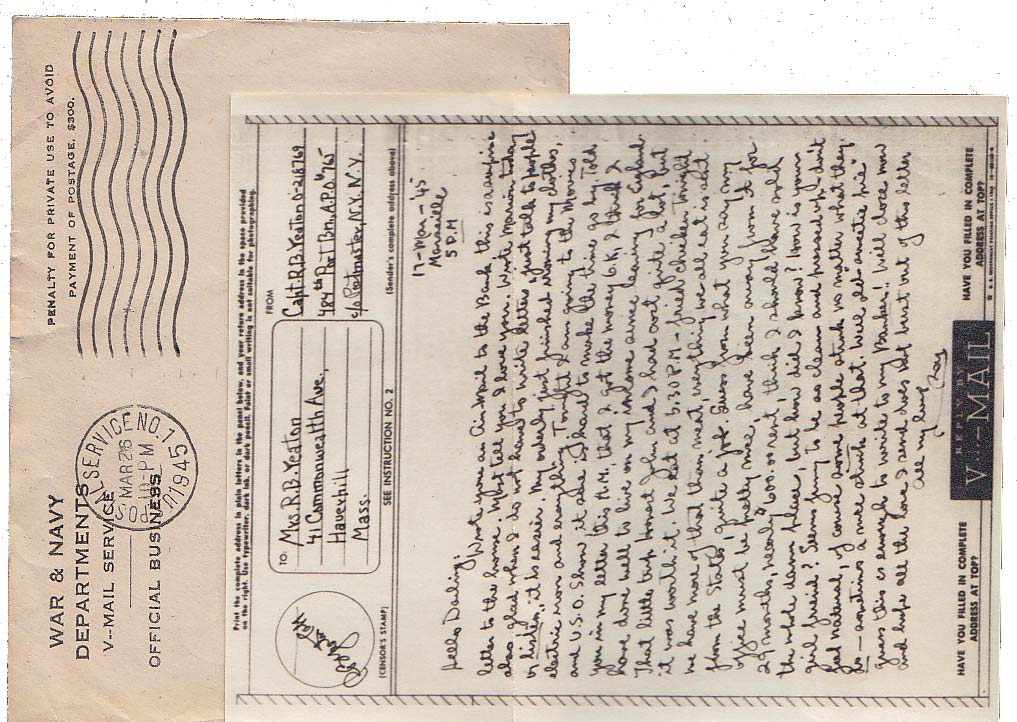 WAR & NAVY
DEPARTMENTS
V--MAIL SERVICE
OFFICIAL BUSINESS
PENALTY FOR PRIVATE USE TO AVOID
PAYMENT OF POSTAGE, $300.
POSTAL SERVICE NO. 1
MAR 26
10-PM
1945
Print the complete address in plain letters in the panel below, and your return address in the space provided
on the right. Use typewriter, dark ink, or dark pencil. Faint or small writing is not suitable for photographing.
TO:
Mrs. R.B. Yeaton
41 Commonwealth Ave.,
Haverhill
Mass.
FROM
Capt. R.B. Yeaton O-218769
484th Port Bn. A.P.O. #765
c/o Postmaster, N.Y. N.Y.
(CENSOR'S STAMP)
SEE INSTRUCTION NO. 2
(Sender's complete address above)
17-Mar-'45
Marseille
5 P.M
Hello Darling:
Wrote you an Air Mail to the Bank this is a surprise
letter to the home. What tell you I love you. Wrote Marion today
also glad when I do not have to write letters "just talk to people
& listen", it is easier. My orderly just finished ironing my clothes,
electric iron and everything. Tonight I am going to the Movies
and U.S.O. Show, it also is hard to make the time go by. Told
you in my letter this A.M. that I got the money O.K, I think I
have done well to live on my income since leaving for England.
That little trip Honest John and I had cost quite a lot, but
it was worth it. We eat at 5.30 P.M - fried chicken tonight
we have more of that than meat, everything we all eat is sent
from the States, quite a job. Guess from what you say my
office must be pretty nice, have been away from it for
29 months, nearly $600. on rent, think I should have sold
the whole damn place, but how did I know? How is your
girl freind? Seems funny to be as clean and pressed up I don't
feel natural, of course some people stink no matter what they
do - sometimes a nice stink at that. Well, old "smoothie pie"
guess this is enough to write to my Banker! Will close now
and hope all the love I send does not burst out of this letter
all my love
Ray
HAVE YOU FILLED IN COMPLETE
ADDRESS AT TOP?
REPLY BY
V---MAIL
HAVE YOU FILLED IN COMPLETE
ADDRESS AT TOP?